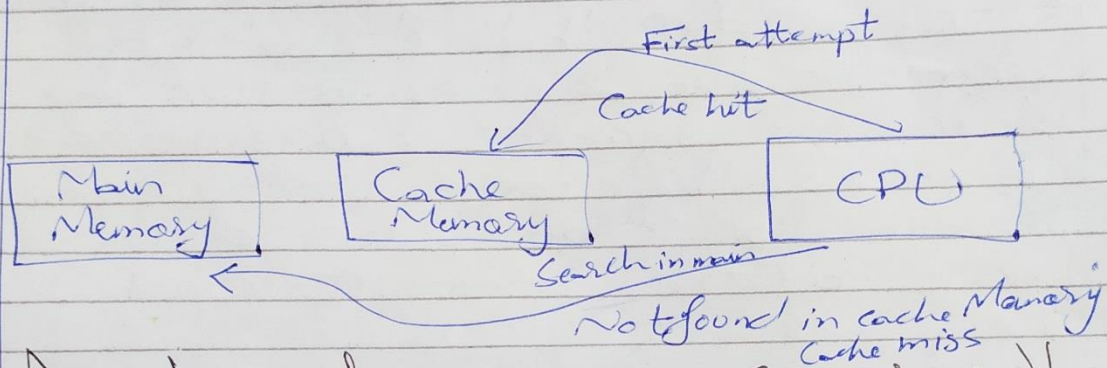 First attempt
Cache hit
Main
Memory
Cache
Memory
CPU
Search in main
Not found in cache Memory
Cache miss